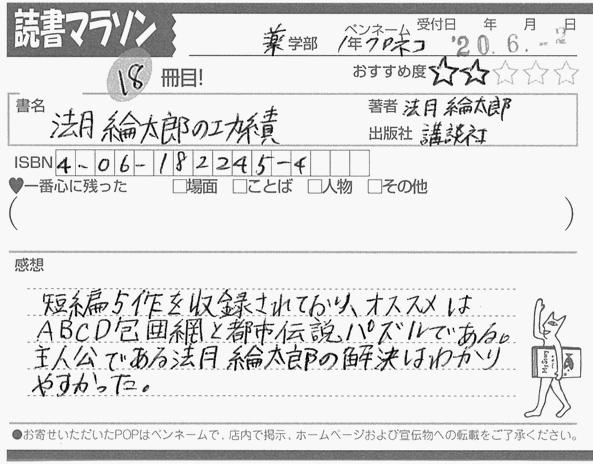 読書マラソン
薬学部 1年 ペンネーム クロネコ 受付日 年 月 日 '20.6.-2
18冊目! おすすめ度 ★★☆☆☆
書名 法月綸太郎の功績
著者 法月綸太郎
出版社 講談社
ISBN 4-06-182245-4
♥一番心に残った □場面 □ことば □人物 □その他
( )
感想
短編5作を収録されており、オススメは
ABCD包囲網と都市伝説パズルである。
主人公である法月綸太郎の解決はわかり
やすかった。
●お寄せいただいたPOPはペンネームで、店内で掲示、ホームページおよび宣伝物への転載をご了承ください。